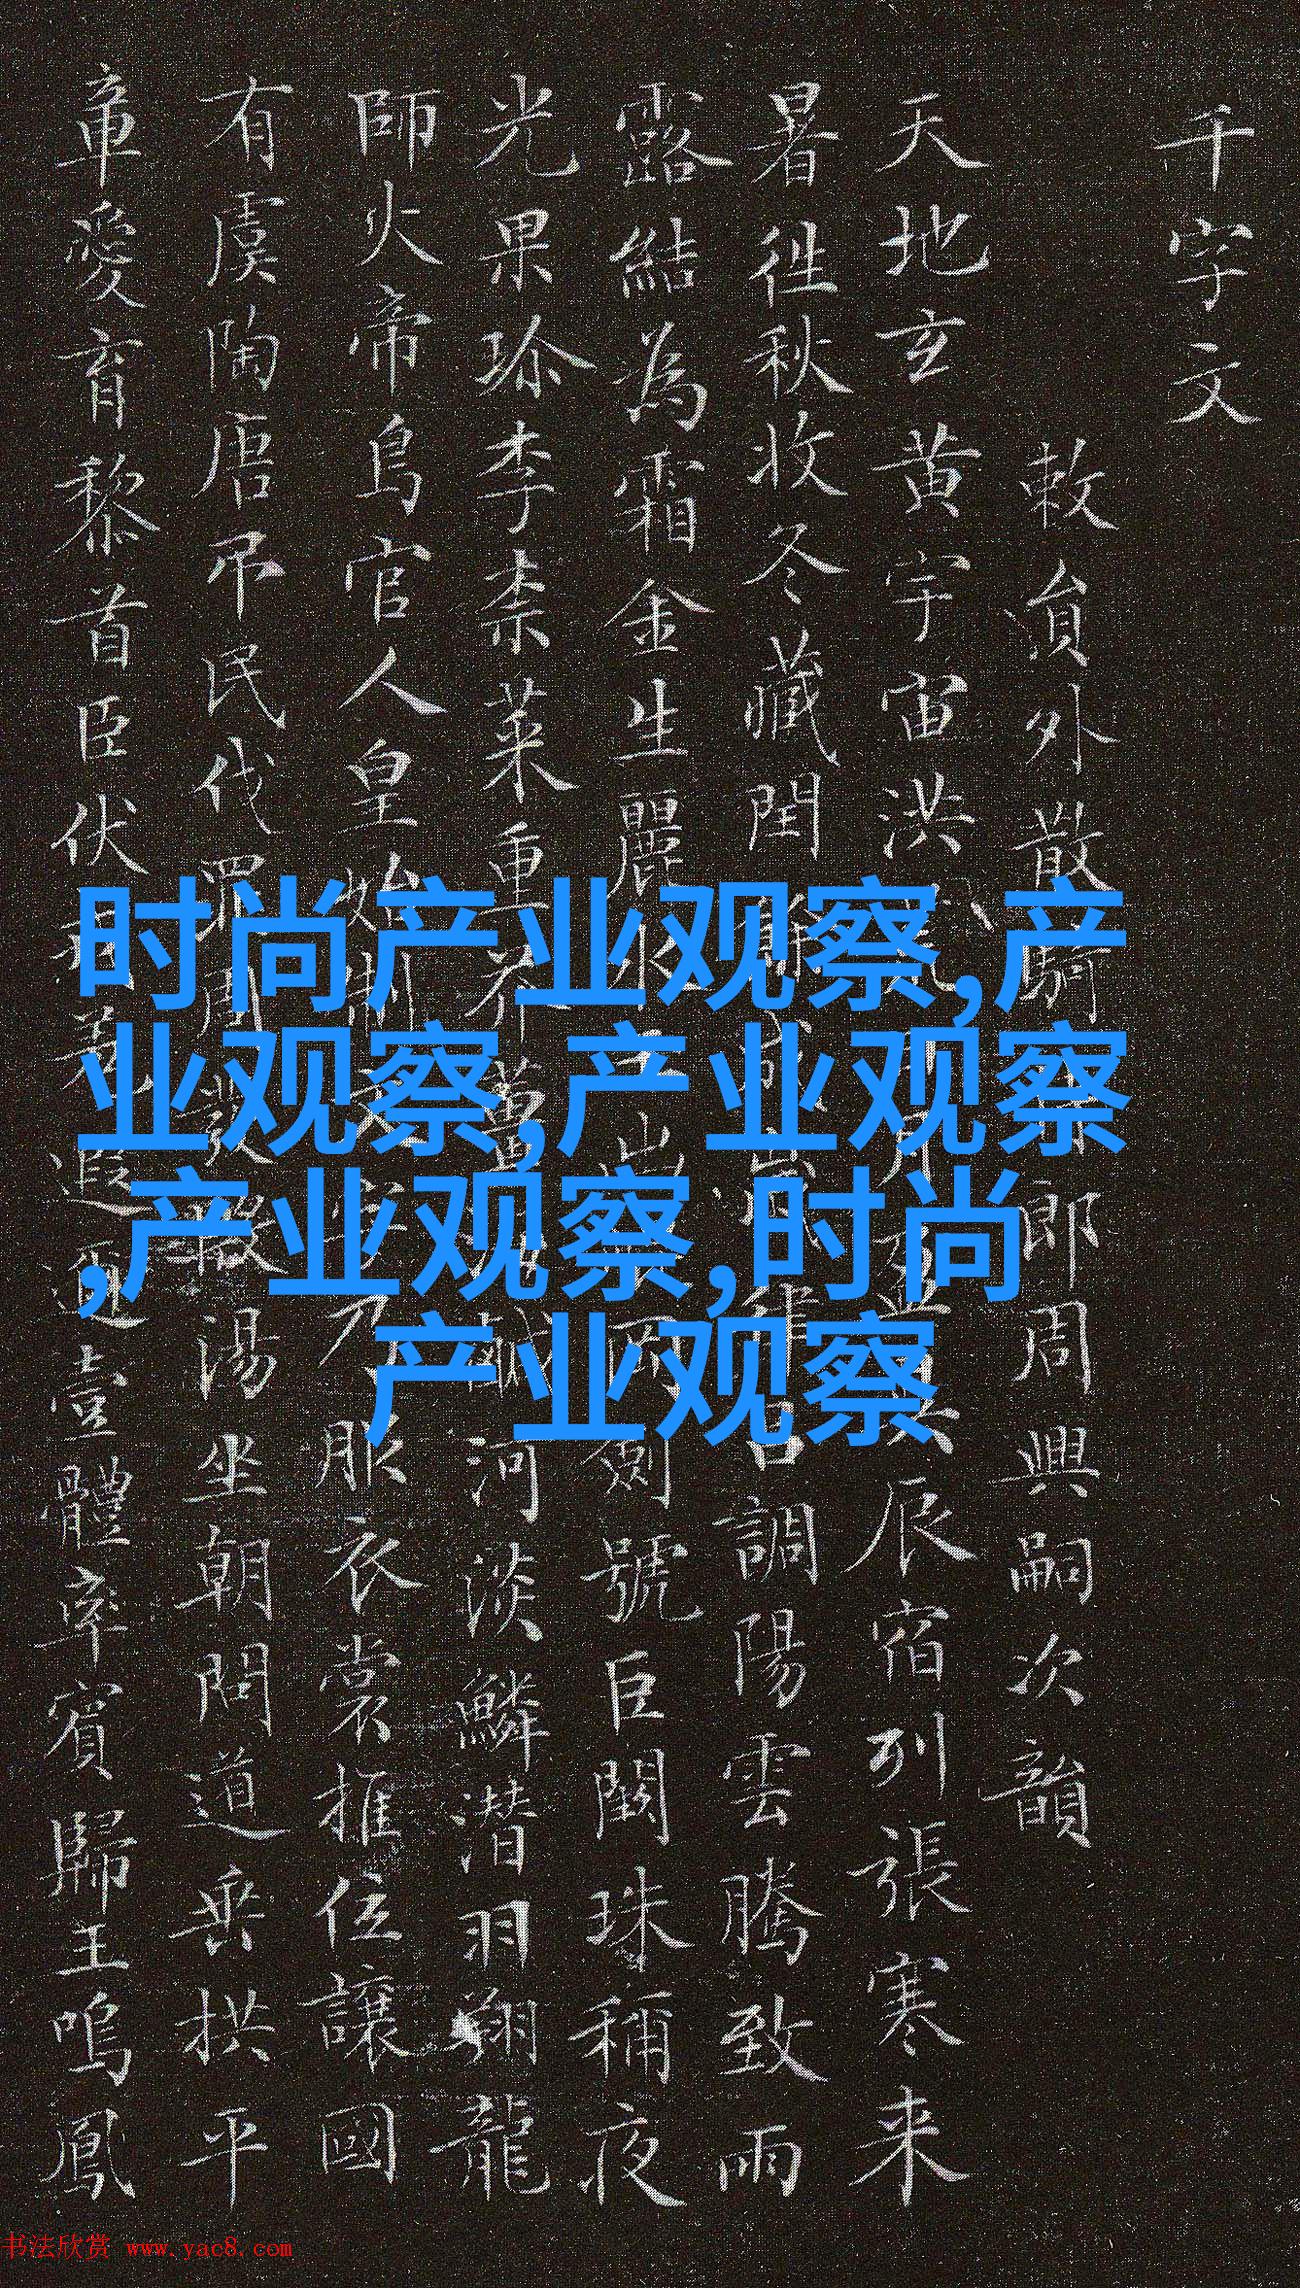 千字文
敕員外散騎郎周興嗣次韻
天地玄黄宇宙洪辰宿列張寒来
暑往秋收冬藏閏調陽雲騰致雨
露結為霜金生麗水劍號巨闕珠稱夜
光果珎李柰菜重芥薑河淡鱗潛羽翔龍
師火帝鳥官人皇始制乃服衣裳推位讓國
有虞陶唐吊民伐罪周發殷湯坐朝問道垂拱平
章愛育黎首臣伏羌遐迩壹體率賓歸王鳴鳳
时尚产业观察,产
业观察,产业观察
,产业观察,时尚
产业观察
书法欣赏 www.yac8.com